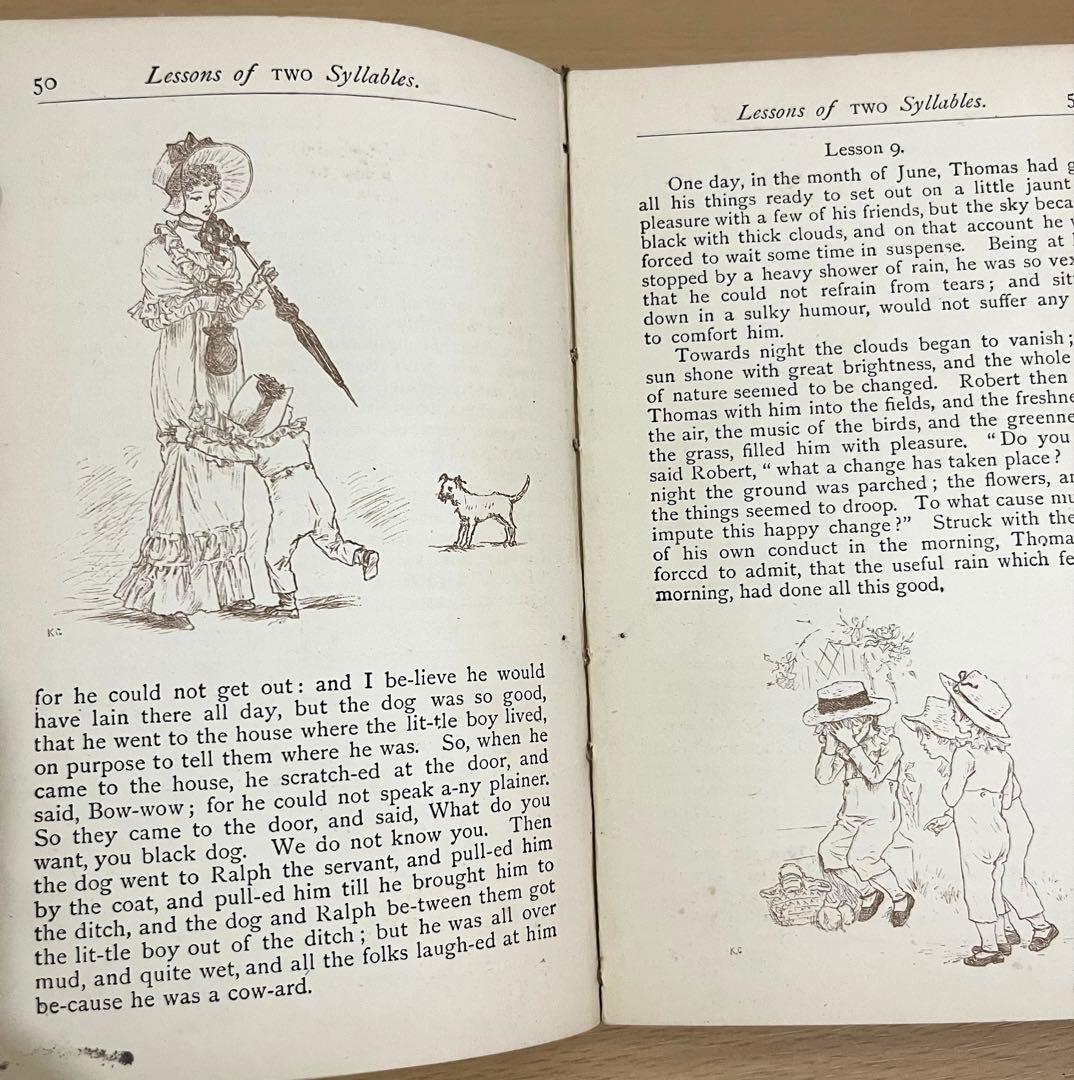 50
Lessons of TWO Syllables.
KG
for he could not get out: and I be-lieve he would
have lain there all day, but the dog was so good,
that he went to the house where the lit-tle boy lived,
on purpose to tell them where he was. So, when he
came to the house, he scratch-ed at the door, and
said, Bow-wow; for he could not speak a-ny plainer.
So they came to the door, and said, What do you
want, you black dog. We do not know you. Then
the dog went to Ralph the servant, and pull-ed him
by the coat, and pull-ed him till he brought him to
the ditch, and the dog and Ralph be-tween them got
the lit-tle boy out of the ditch; but he was all over
mud, and quite wet, and all the folks laugh-ed at him
be-cause he was a cow-ard.
Lessons of TWO Syllables.
Lesson 9.
One day, in the month of June, Thomas had
all his things ready to set out on a little jaunt
pleasure with a few of his friends, but the sky
black with thick clouds, and on that account he
forced to wait some time in suspense. Being at
stopped by a heavy shower of rain, he was so
that he could not refrain from tears; and
down in a sulky humour, would not suffer any
to comfort him.
Towards night the clouds began to vanish;
sun shone with great brightness, and the whole
of nature seemed to be changed. Robert then
Thomas with him into the fields, and the
the air, the music of the birds, and the
the grass, filled him with pleasure. "Do you
said Robert, "what a change has taken place?
night the ground was parched; the flowers,
the things seemed to droop. To what cause
impute this happy change?" Struck with
of his own conduct in the morning,
forced to admit, that the useful rain which
morning, had done all this good,
KG